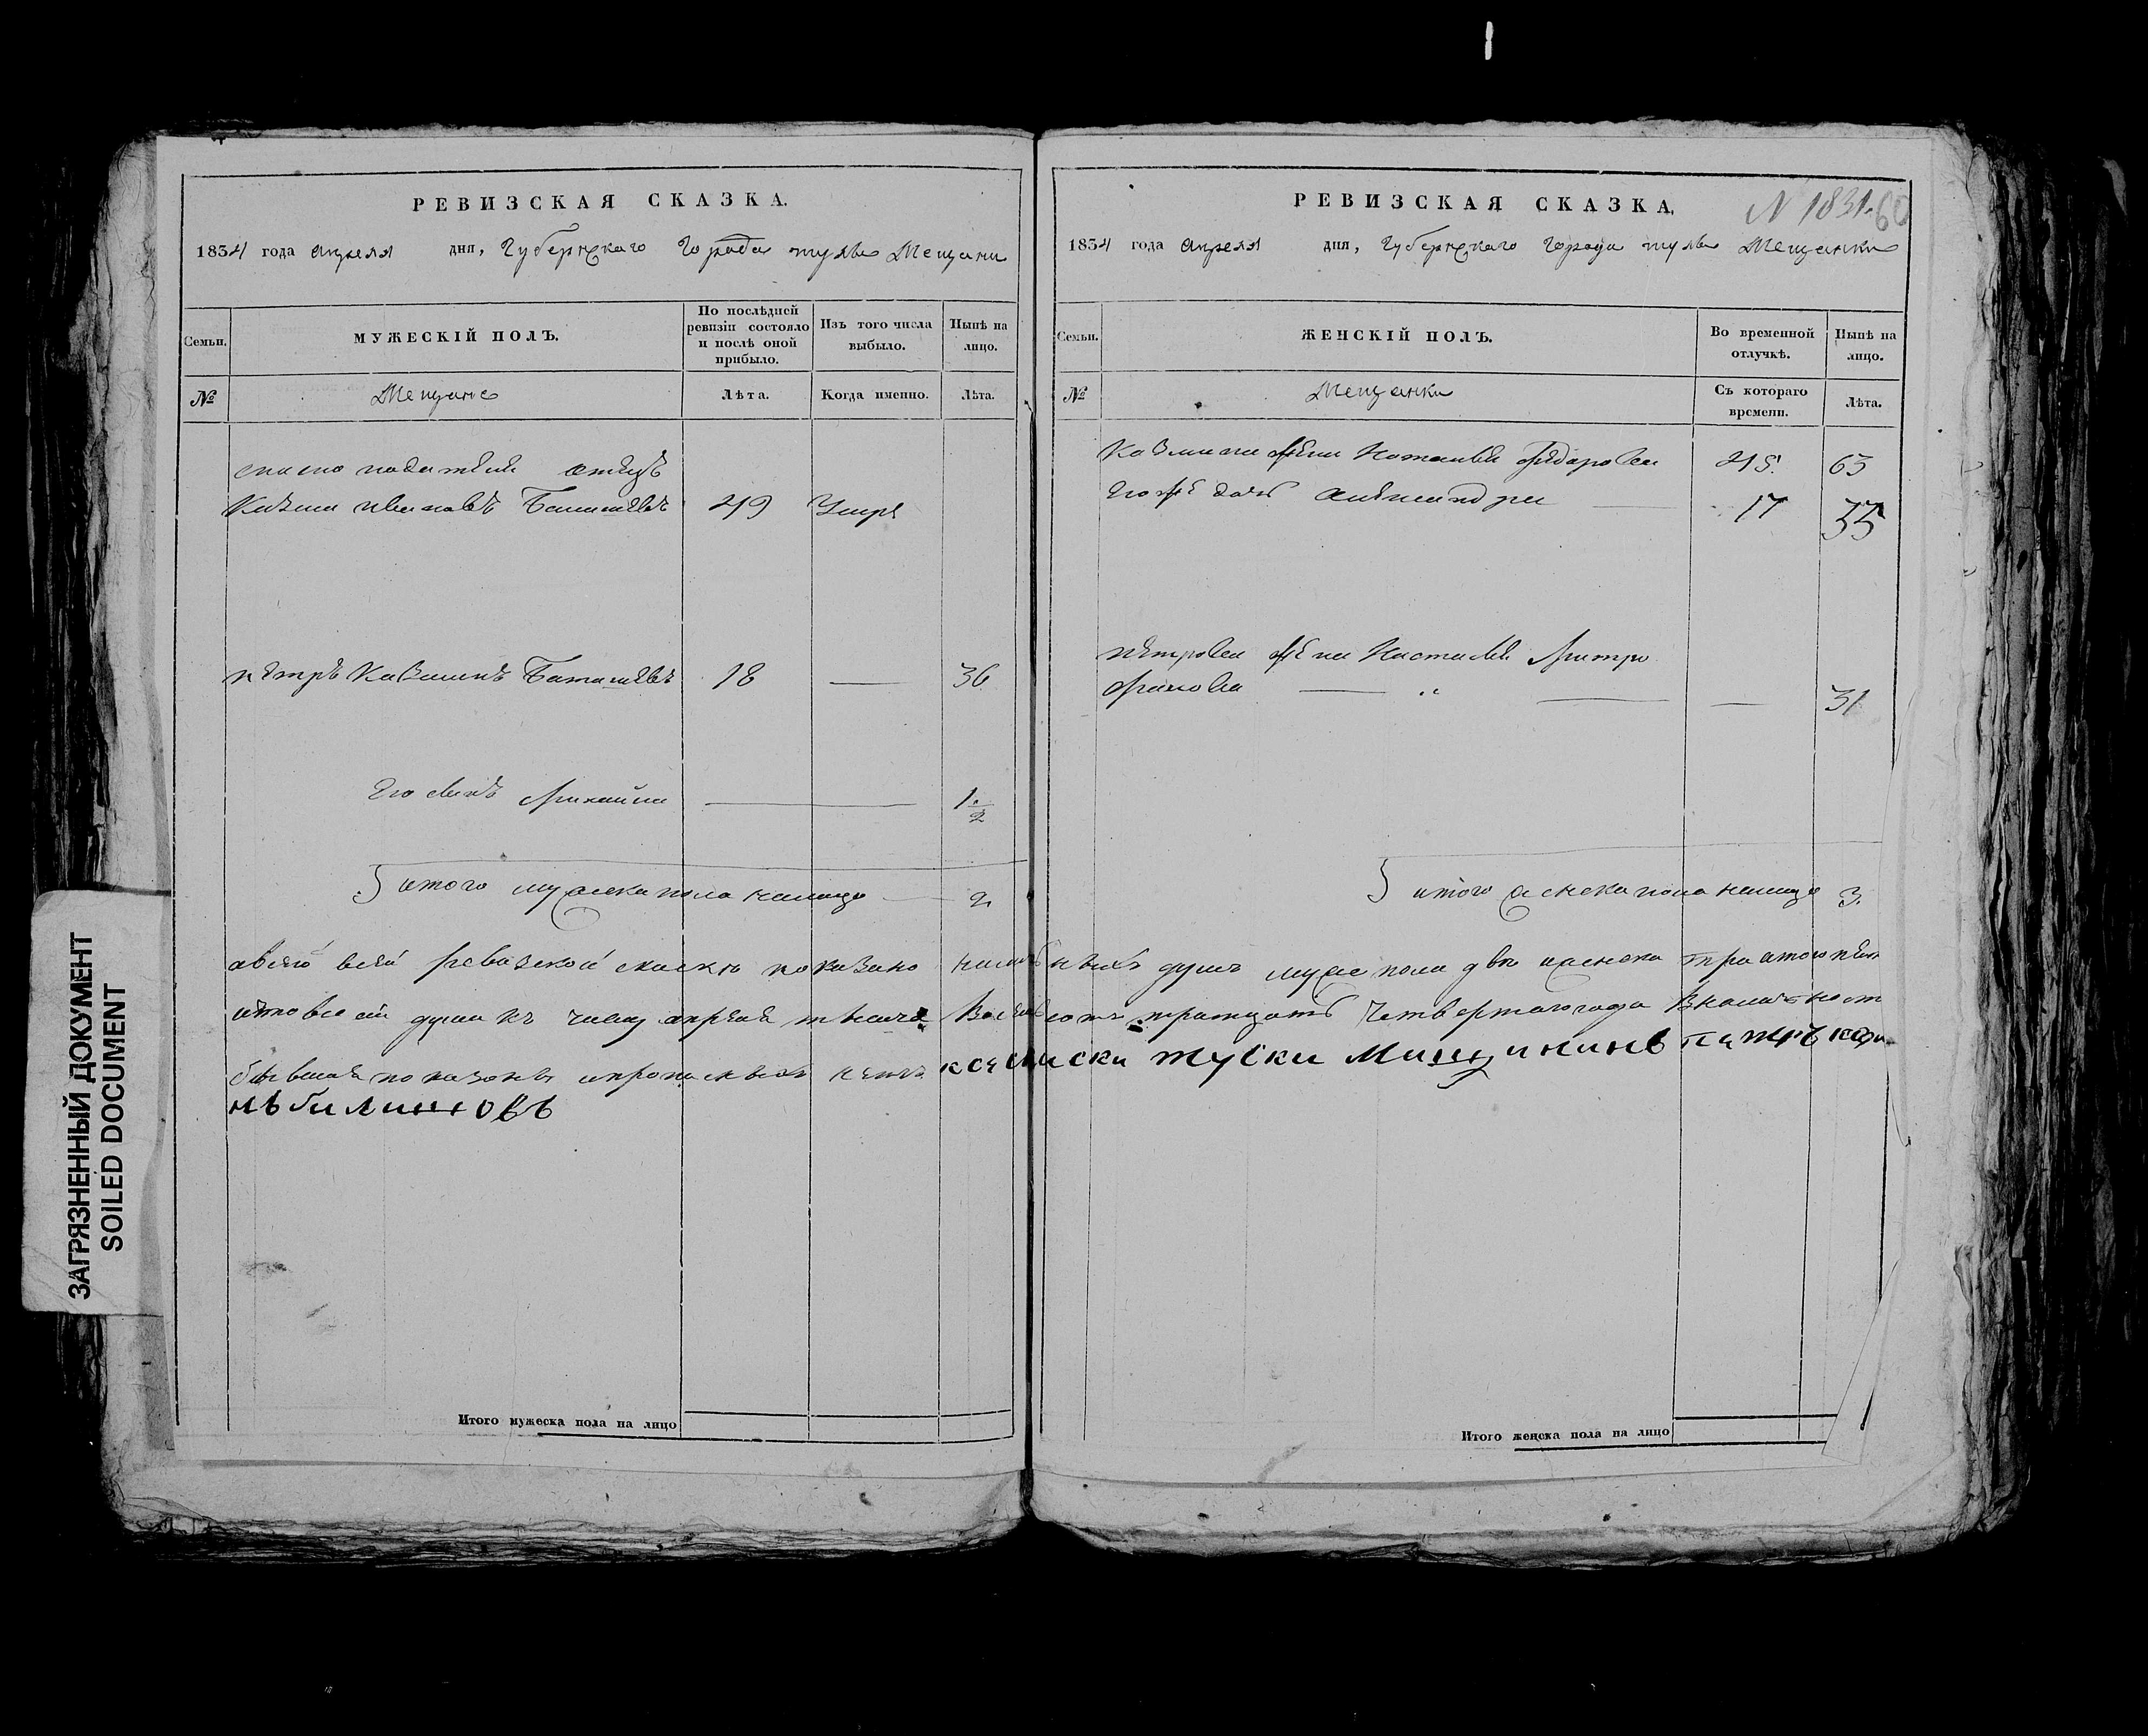 РЕВИЗСКАЯ СКАЗКА.
1834 года апреля дня, Губернскаго Города тулы Мещани
Семьи. МУЖЕСКІЙ ПОЛЪ. По послѣдней ревизіи состояло и послѣ оной прибыло. Изъ того числа выбыло. Нынѣ на лицо.
№ Мещане Лѣта. Когда именно. Лѣта.
отецъ
Казма ивановъ Баташевъ 49 Умре
петръ Казминъ Баташевъ 18 — 36
Его сынъ Михайла — 1 1/2
итого мужеска пола налицо — 2
ЗАГРЯЗНЕННЫЙ ДОКУМЕНТ
SOILED DOCUMENT
Итого мужеска пола на лицо
РЕВИЗСКАЯ СКАЗКА.
N 1831. 60
1834 года апреля дня, Губернскаго Города тулы Мещанки
Семьи. ЖЕНСКІЙ ПОЛЪ. Во временной отлучкѣ. Нынѣ на лицо.
№ Мещанки Съ котораго времени. Лѣта.
Казмина жена Наталья Федорова 45. 63
Его же дочь Александра — 17 35
петрова жена Настасья Митро
фанова — — — 31
итого женска пола налицо 3.
авсего всей ревизской скаске показано наличныхъ душъ муже пола две женска три итого
душъ къ числу апреля тысяча Восемьсотъ тритцать Четвертаго года
показаны ипрописныхъ нетъ к сей скаски тулски Мищининъ Петръ
Итого женска пола на лицо